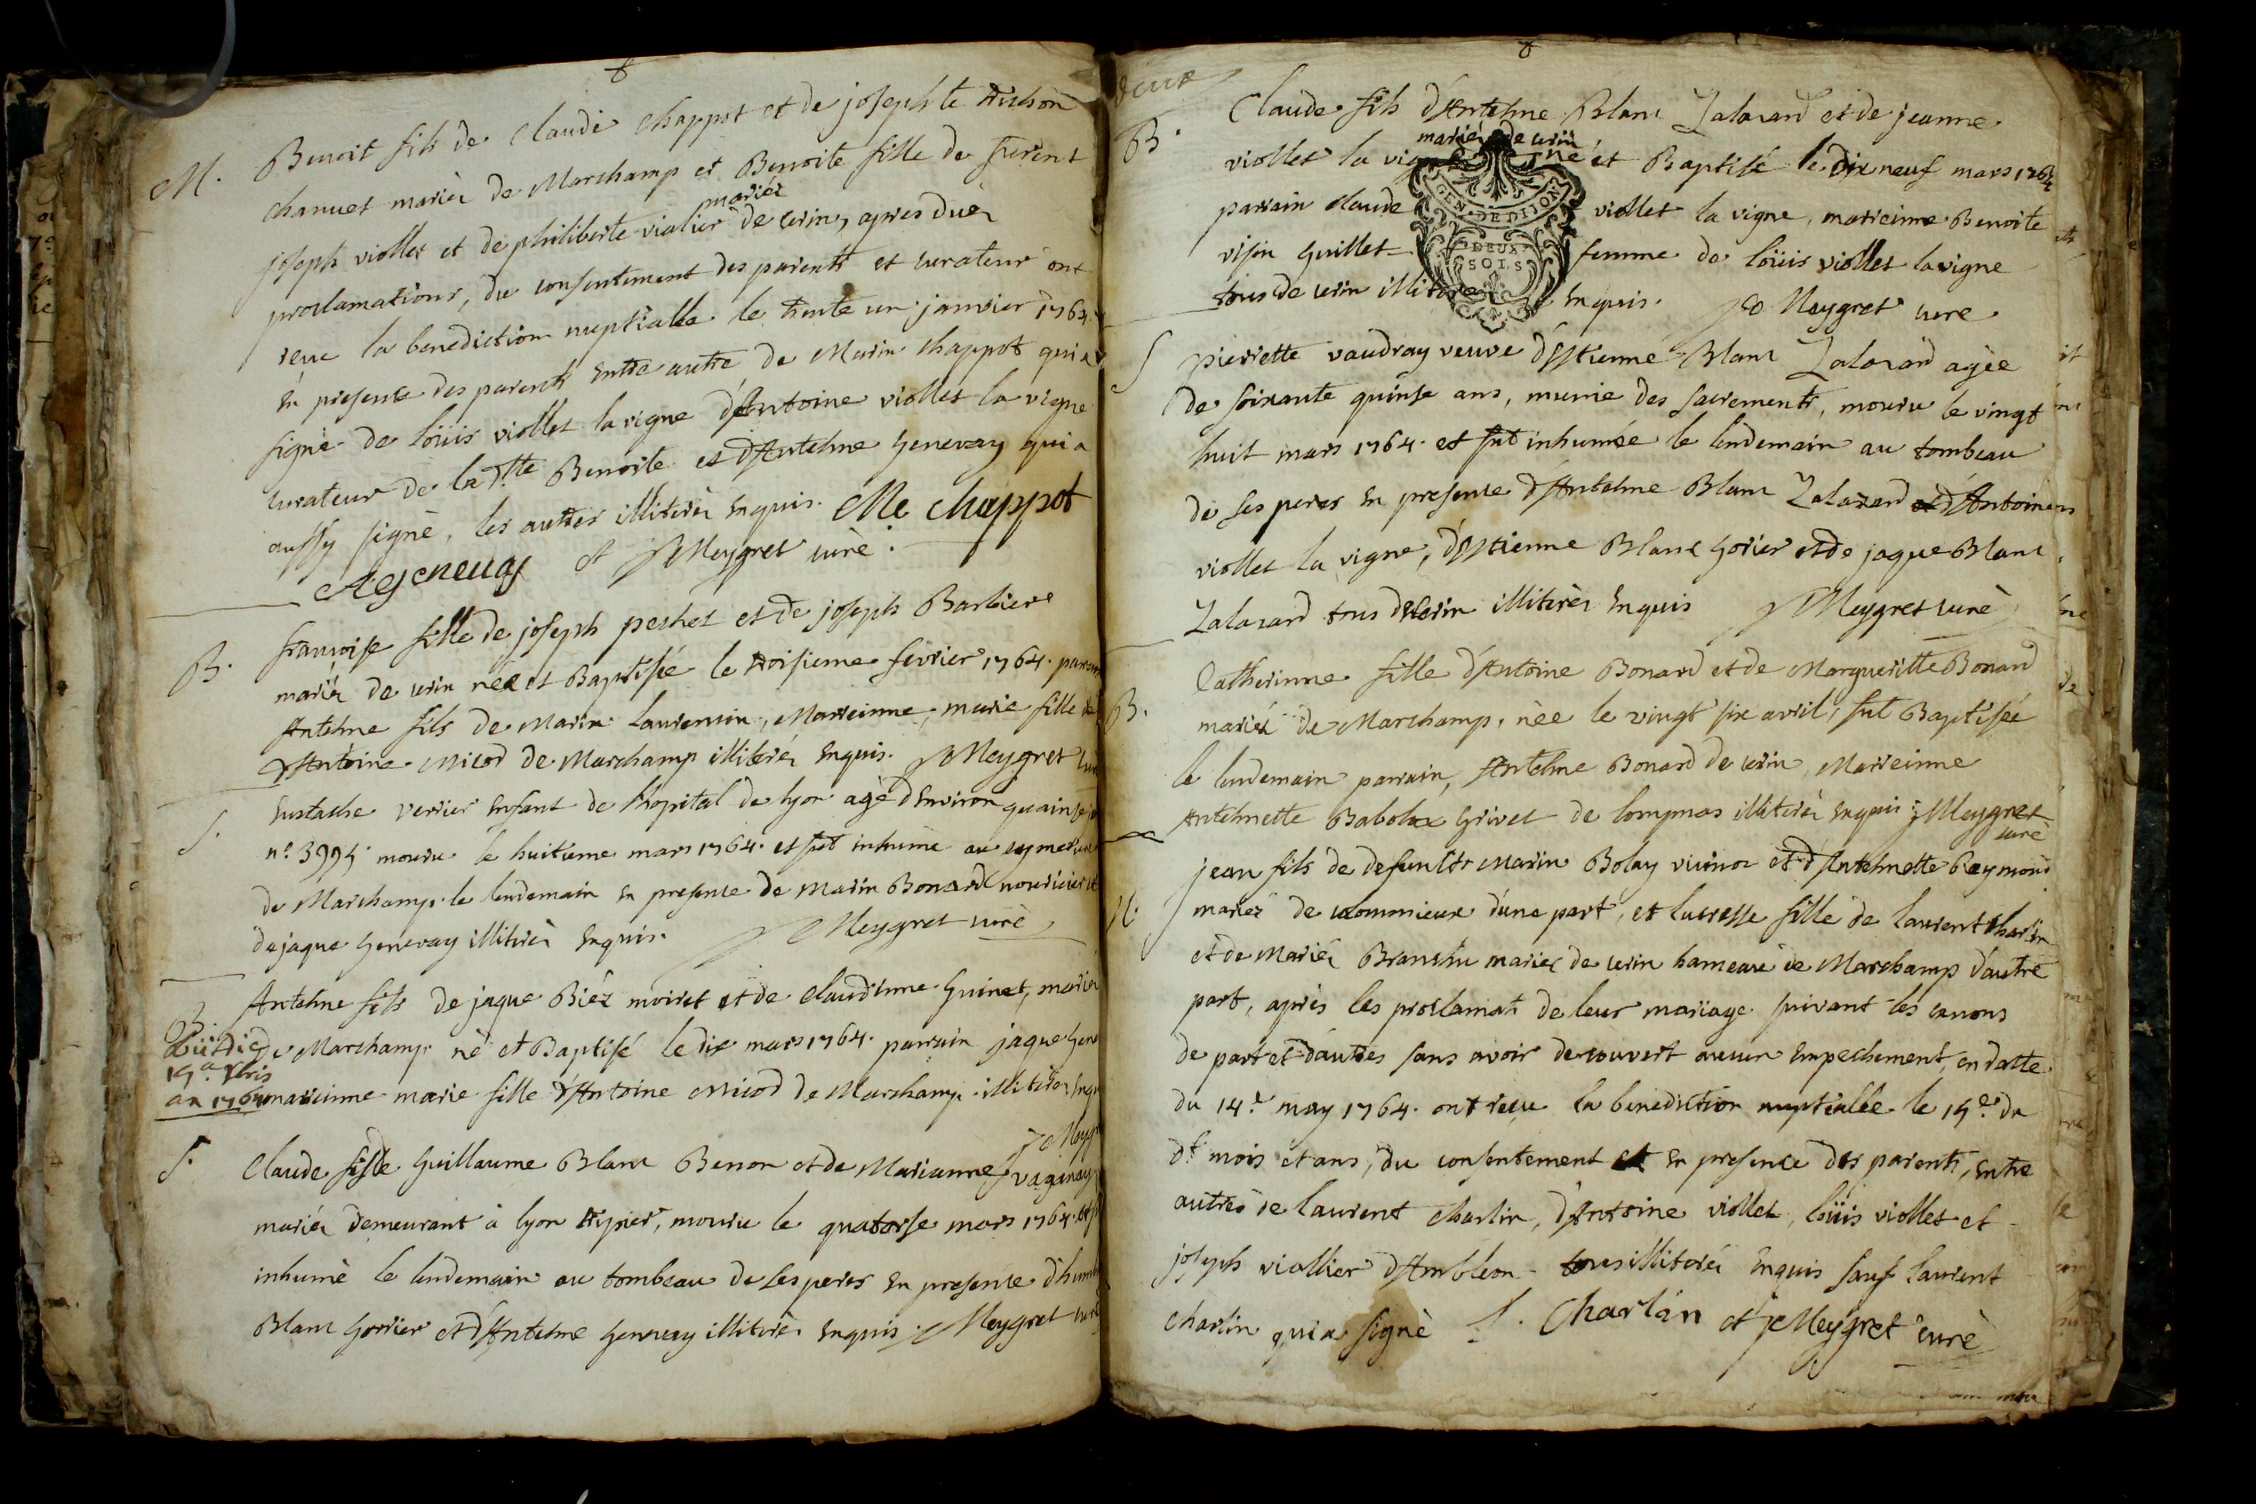 M. Benoit fils de Claude Chappot et de josephte
chanuet mariés de Marchamp et Benoite fille de
joseph viollet et de philiberte violier mariés de cerin, apres duës
proclamations, du consentement des parents et curateur ont
reçu la benediction nuptialle le trente un janvier 1764.
en presence des parents entre autre de Marin chappot qui a
signè de loüis viollet la vigne d'Antoine viollet la vigne
curateur de la dtte Benoite et d'Antelme Genevay qui a
aussy signè, les autres illiterés enquis. Me chappot
et Meygret curè.
B. francoise fille de joseph pechet et de joseph Barbiere
mariés de cerin née et Baptisée le troisieme fevrier 1764.
Antelme fils de Marin laurencin, Marreinne, marie fille
d'Antoine Micod de Marchamp illiterés enquis. Meygret
S. Eustache verrier enfant de l'hopital de lyon agè d'environ
n.º mouru le huitieme mars 1764. et fut inhumè au
de Marchamp le lendemain en presence de Marin Bonard
de jaque Genevay illiterés enquis. Meygret curè
B. Antelme fils de jaque Biéz et de Claudinne Guinet, mariés
de Marchamp né et Baptisé le dix mars 1764. parrain jaque
an 1764
marreinne marie fille d'Antoine Micod de Marchamp illiterés
S. Claude Guillaume Blanc Benon et de Marianne vaganay
mariés demeurant à lyon, mouru le quatorse mars 1764.
inhumè le lendemain au tombeau de ses peres en presence
Blanc et d'Antelme Genevay illiterés enquis. Meygret
deux
B. Claude fils d'Antelme Blanc Lalozard et de jeanne
viollet la vigne mariés de cerin né et Baptisé le dix neuf mars 1764
parrain claude viollet la vigne, marreinne Benoite
GEN. DE DIJON
visin Guillet femme de loüis viollet la vigne
DEUX SOLS
tous de cerin illiterés enquis. Meygret cure.
S pierrette vaudray veuve d'Estienne Blanc Lalozard agée
de soixante quinse ans, munie des sacrements, mouru le vingt
huit mars 1764. et fut inhumée le lendemain au tombeau
de ses peres en presence d'Antelme Blanc Lalozard et d'Antoine
viollet la vigne, d'Estienne Blanc et de jaque Blanc
Lalozard tous de cerin illiterés enquis Meygret curè
B. Catherinne fille d'Antoine Bonard et de Margueritte Bonard
mariés de Marchamp, née le vingt six avril, fut Baptisée
le lendemain parrain, Antelme Bonard de cerin, Marreinne
Antelmette Grivet de lompnas illiterés enquis Meygret
curè
M. jean fils de defunct Marin Bolay et d'Antelmette Reymond
mariés de d'une part, et lucresse fille de laurent charlin
et de Mariè Branchu mariés de cerin hameau de Marchamp d'autre
part, après les proclamat. de leur mariage suivant les canons
de part et d'autres sans avoir decouvert aucun empechement, en datte
du 14.e may 1764. ont reçu la benediction nuptialle le 15.e du
dt. mois et ans, du consentement et en presence des parents, entre
autres de laurent charlin, d'Antoine viollet, loüis viollet et
joseph viollier d'Ambleon tous illiterés enquis sauf laurent
charlin qui a signè L. Charlin et Meygret curè